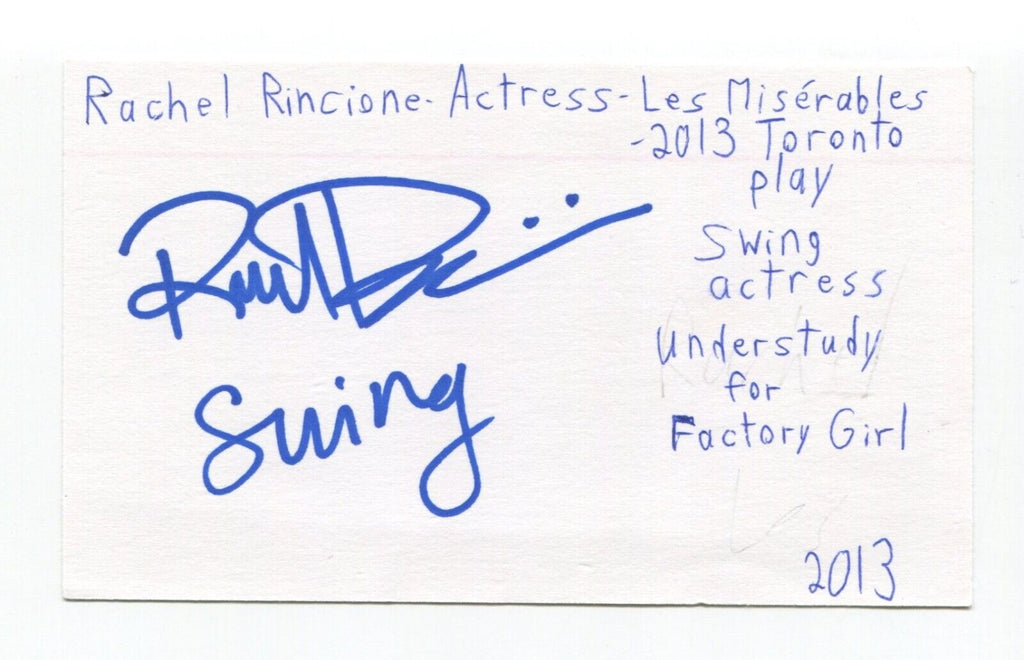 Rachel Rincione - Actress - Les Misérables
- 2013 Toronto
play
Swing
actress
Understudy
for
Factory Girl
Swing
2013